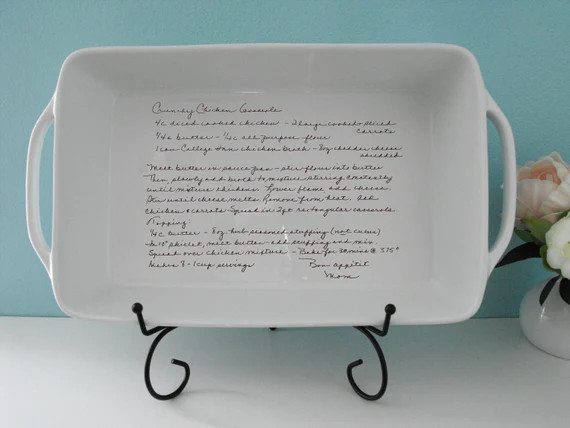 Crunchy Chicken Casserole
4c diced cooked chicken - 2 large cooked & sliced
carrots
1/4c butter - 1/4c all-purpose flour
1 can College Inn chicken broth - 8oz cheddar cheese
shredded
Melt butter in sauce pan - stir flour into butter
Then slowly add broth to mixture stirring constantly
until mixture thickens. Lower flame, add cheese
Stir until cheese melts. Remove from heat. Add
chicken & carrots. Spread in 2 qt rectangular casserole
Topping:
1/4c butter - 8oz. herb seasoned stuffing (not cubes)
In " skillet, melt butter - add stuffing and mix.
Spread over chicken mixture - Bake for minutes @ 375°
Makes 8 - 1 cup servings
Bon appétit
Mom